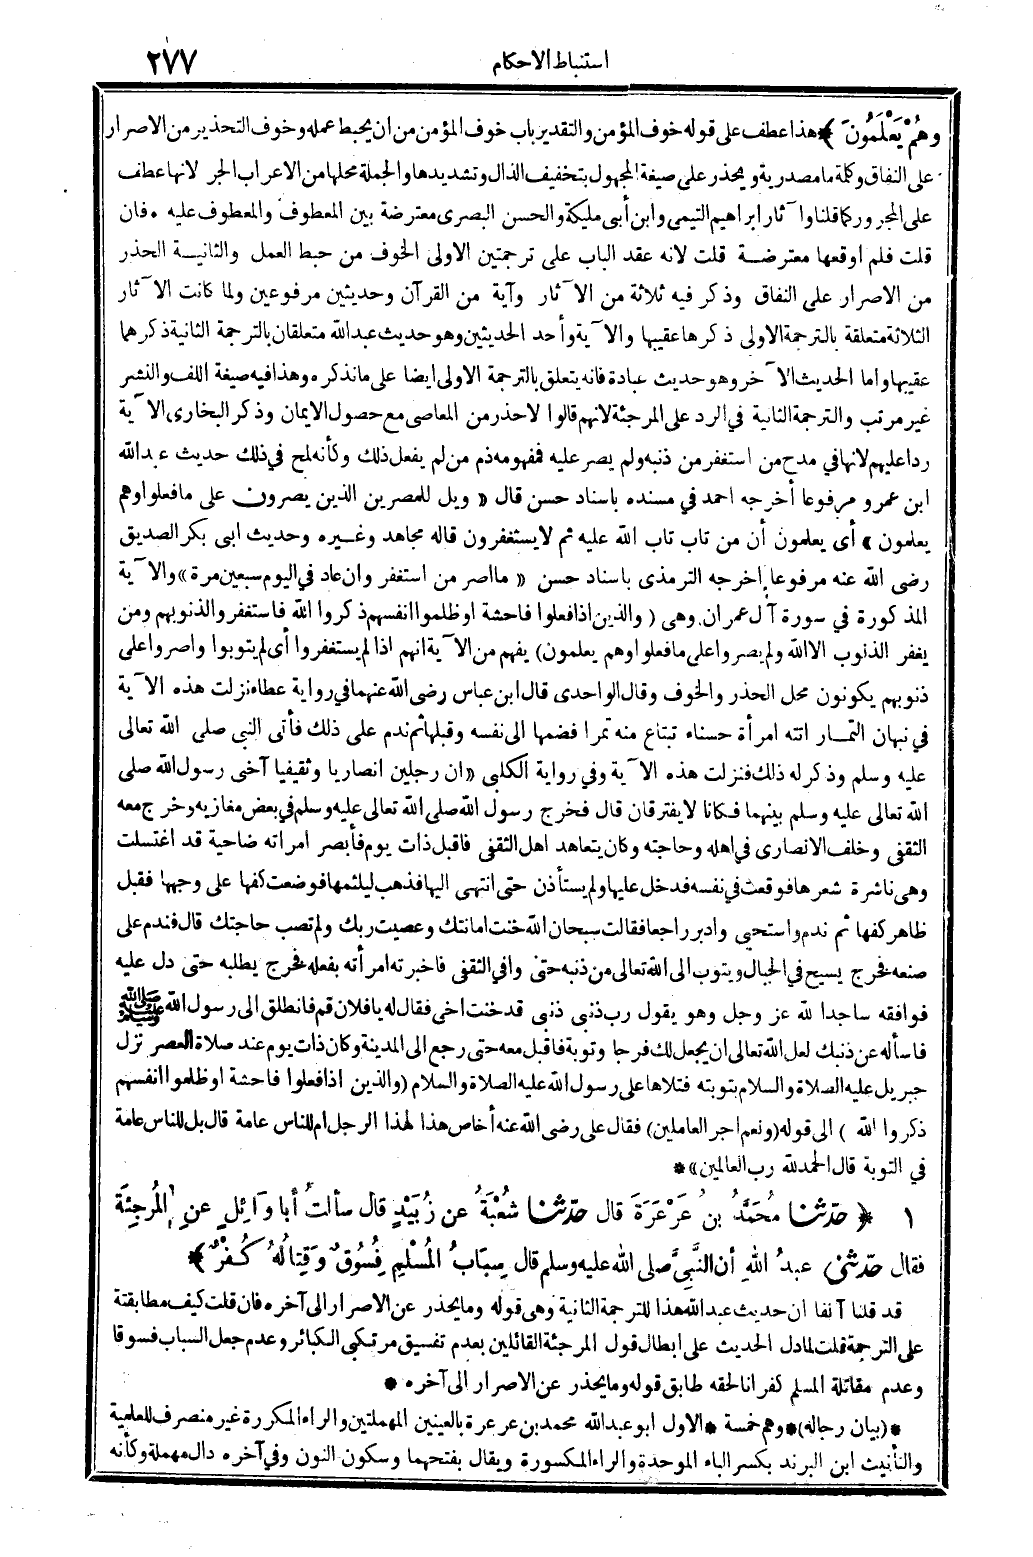 استنباط الاحكام
٢٧٧
وَهُمْ يَعْلَمُونَ ﴾ هذا عطف على قوله خوف المؤمن والتقدير باب خوف المؤمن من ان يحبط عمله وخوف التحذير من الاصرار
على النفاق وكلة ما مصدرية ويحذر على صيغة المجهول بتخفيف الذال وتشديدها والجملة محلها من الاعراب الجر لانها عطف
على المجرور كما قلنا وآثار ابراهيم التيمى وابن أبى مليكة والحسن البصرى معترضة بين المعطوف والمعطوف عليه . فان
قلت فلم اوقعها معترضة قلت لانه عقد الباب على ترجمتين الاولى الخوف من حبط العمل والثانية الحذر
من الاصرار على النفاق وذكر فيه ثلاثة من الآثار وآية من القرآن وحديثين مرفوعين ولما كانت الآثار
الثلاثة متعلقة بالترجمة الاولى ذكرها عقيبها والآية وأحد الحديثين وهو حديث عبدالله متعلقان بالترجمة الثانية ذكرهما
عقيبها واما الحديث الآخر وهو حديث عبادة فانه يتعلق بالترجمة الاولى ايضا على ما نذكره وهذا فيه صيغة اللف والنشر
غير مرتب والترجمة الثانية في الرد على المرجئة لانهم قالوا لا حذر من المعاصى مع حصول الايمان وذكر البخارى الآية
ردا عليهم لانها في مدح من استغفر من ذنبه ولم يصر عليه فمفهومه ذم من لم يفعل ذلك وكأنه لمح في ذلك حديث عبدالله
ابن عمرو مرفوعا أخرجه احمد في مسنده باسناد حسن قال « ويل للمصرين الذين يصرون على ما فعلوا وهم
يعلمون » أى يعلمون أن من تاب تاب الله عليه ثم لا يستغفرون قاله مجاهد وغيره وحديث ابى بكر الصديق
رضى الله عنه مرفوعا اخرجه الترمذى باسناد حسن « ما اصر من استغفر وان عاد في اليوم سبعين مرة » والآية
المذكورة في سورة آل عمران وهى ( والذين اذا فعلوا فاحشة او ظلموا انفسهم ذكروا الله فاستغفروا لذنوبهم ومن
يغفر الذنوب الا الله ولم يصروا على ما فعلوا وهم يعلمون) يفهم من الآية انهم اذا لم يستغفروا أى لم يتوبوا واصروا على
ذنوبهم يكونون محل الحذر والخوف وقال الواحدى قال ابن عباس رضى الله عنهما في رواية عطاء نزلت هذه الآية
في نبهان التمار اتته امرأة حسناء تبتاع منه تمرا فضمها الى نفسه وقبلها ثم ندم على ذلك فأتى النبى صلى الله تعالى
عليه وسلم وذكر له ذلك فنزلت هذه الآية وفي رواية الكلبى « ان رجلين انصاريا وثقيفيا آخى رسول الله صلى
الله تعالى عليه وسلم بينهما فكانا لا يفترقان قال فخرج رسول الله صلى الله تعالى عليه وسلم في بعض مغازيه وخرج معه
الثقفى وخلف الانصارى في اهله وحاجته وكان يتعاهد اهل الثقفى فاقبل ذات يوم فأبصر امرأته ضاحية قد اغتسلت
وهى ناشرة شعرها فوقعت في نفسه فدخل عليها ولم يستأذن حتى انتهى اليها فذهب ليلثمها فوضعت كفها على وجهها فقبل
ظاهر كفها ثم ندم واستحيى وادبر راجعا فقالت سبحان الله خنت امانتك وعصيت ربك ولم تصب حاجتك قال فندم على
صنعه فخرج يسيح في الجبال ويتوب الى الله تعالى من ذنبه حتى وافى الثقفى فاخبرته امرأته بفعله فخرج يطلبه حتى دل عليه
فوافقه ساجدا لله عز وجل وهو يقول رب ذنبى ذنبى قد خنت اخى فقال له يا فلان قم فانطلق الى رسول الله ﷺ
فاسأله عن ذنبك لعل الله تعالى ان يجعل لك فرجا وتوبة فاقبل معه حتى رجع الى المدينة وكان ذات يوم عند صلاة العصر نزل
جبريل عليه الصلاة والسلام بتوبته فتلاها على رسول الله عليه الصلاة والسلام (والذين اذا فعلوا فاحشة او ظلموا انفسهم
ذكروا الله ) الى قوله (ونعم اجر العاملين) فقال على رضى الله عنه أخاص هذا لهذا الرجل ام للناس عامة قال بل للناس عامة
في التوبة قال الحمد لله رب العالمين » *
١ ﴿ حَدَّثنا مُحَمَّدُ بنُ عَرْعَرَةَ قال حَدَّثنا شُعْبَةُ عن زُبَيْدٍ قال سألتُ أبا وَائِلٍ عنِ المُرْجِئَةِ
فقال حَدَّثنى عبدُ اللهِ أن النَّبِىَّ صلى الله عليه وسلم قال سِبَابُ المُسْلِمِ فُسُوقٌ وَقِتَالُهُ كُفْرٌ ﴾
قد قلنا آنفا ان حديث عبدالله هذا للترجمة الثانية وهى قوله وما يحذر عن الاصرار الى آخره فان قلت كيف مطابقته
على الترجمة قلت لما دل الحديث على ابطال قول المرجئة القائلين بعدم تفسيق مرتكبى الكبائر وعدم جعل السباب فسوقا
وعدم مقاتلة المسلم كفرانا لحقه طابق قوله وما يحذر عن الاصرار الى آخره *
*(بيان رجاله)* وهم خمسة * الاول ابو عبدالله محمد بن عرعرة بالعينين المهملتين والراء المكررة غير منصرف للعلمية
والتأنيث ابن البرند بكسر الباء الموحدة والراء المكسورة ويقال بفتحهما وسكون النون وفي آخره دال مهملة وكأنه